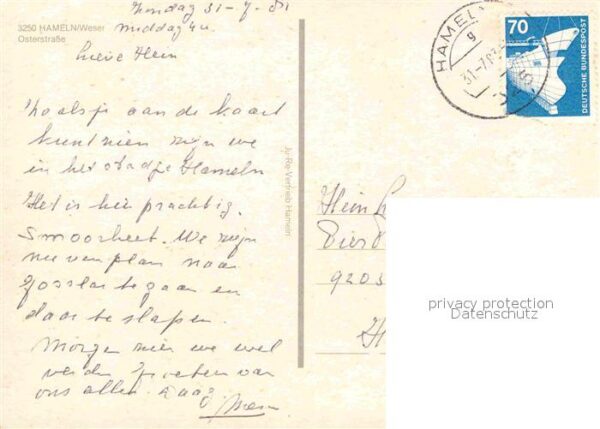 3250 HAMELN/Weser
Osterstraße
Zondag 31-7-
middag 4u
Lieve Hein
Zoals je aan de kaart
kunt zien zijn we
in het stadje Hameln
Het is hier prachtig.
Smoorheet. We zijn
nu van plan naar
Goslar te gaan en
daar te slapen.
Morgen zien we wel
verder. Groeten van
ons allen. Daag
Ju-Re-Vertrieb Hameln
HAMEL
g
31-7.83
70
DEUTSCHE BUNDESPOST
Hein
9203
H
privacy protection
Datenschutz